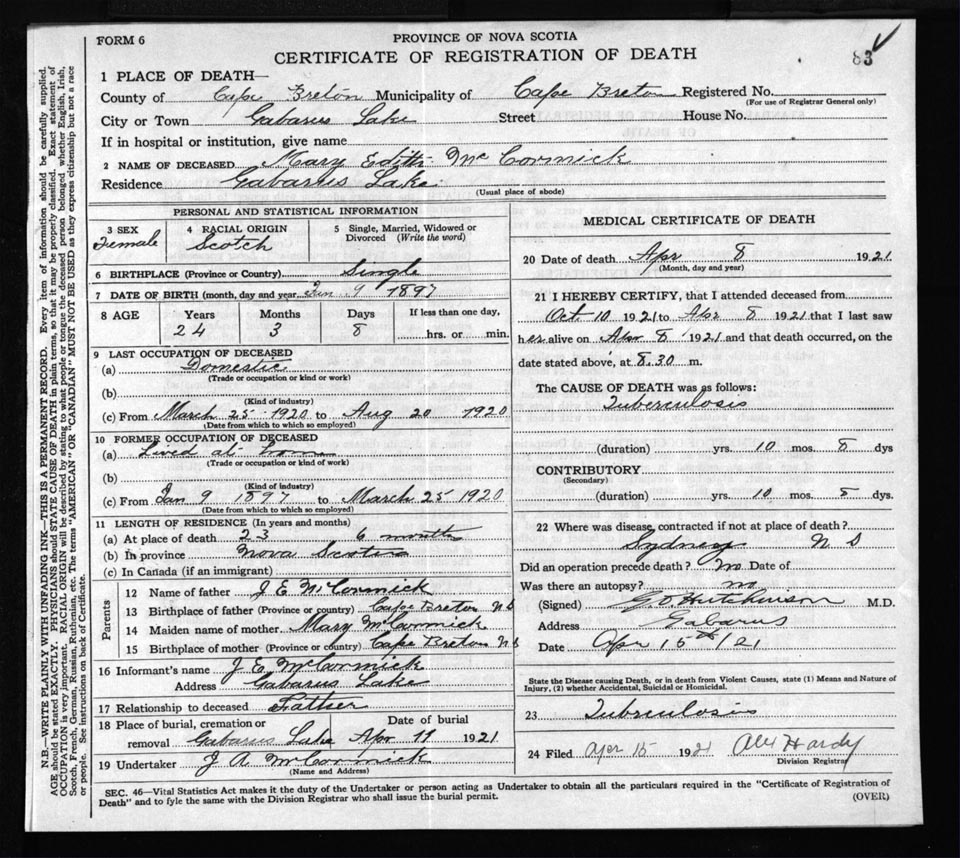 FORM 6
PROVINCE OF NOVA SCOTIA
CERTIFICATE OF REGISTRATION OF DEATH
83
1 PLACE OF DEATH—
County of Cape Breton Municipality of Cape Breton Registered No.
(For use of Registrar General only)
City or Town Gabarus Lake Street House No.
If in hospital or institution, give name
2 NAME OF DECEASED Mary Edith McCormick
Residence Gabarus Lake
(Usual place of abode)
PERSONAL AND STATISTICAL INFORMATION
3 SEX 4 RACIAL ORIGIN 5 Single, Married, Widowed or
Female Scotch Divorced (Write the word)
6 BIRTHPLACE (Province or Country) Single
7 DATE OF BIRTH (month, day and year) Jan 9 1897
8 AGE Years Months Days If less than one day,
24 3 8 hrs. or min.
9 LAST OCCUPATION OF DECEASED
(a) Domestic
(Trade or occupation or kind or work)
(b)
(Kind of industry)
(c) From March 25 1920 to Aug 20 1920
(Date from which to which so employed)
10 FORMER OCCUPATION OF DECEASED
(a) Lived at home
(Trade or occupation or kind of work)
(b)
(Kind of industry)
(c) From Jan 9 1897 to March 25 1920
(Date from which to which so employed)
11 LENGTH OF RESIDENCE (In years and months)
(a) At place of death 23 6 months
(b) In province Nova Scotia
(c) In Canada (if an immigrant)
Parents
12 Name of father J E McCormick
13 Birthplace of father (Province or country) Cape Breton N S
14 Maiden name of mother Mary McCormick
15 Birthplace of mother (Province or country) Cape Breton N S
16 Informant's name J E McCormick
Address Gabarus Lake
17 Relationship to deceased Father
18 Place of burial, cremation or Date of burial
removal Gabarus Lake Apr 11 1921
19 Undertaker J A McCormick
(Name and Address)
MEDICAL CERTIFICATE OF DEATH
20 Date of death Apr 8 1921
(Month, day and year)
21 I HEREBY CERTIFY, that I attended deceased from
Oct 10 1921 to Apr 8 1921 that I last saw
her alive on Apr 8 1921 and that death occurred, on the
date stated above, at 8.30 m.
The CAUSE OF DEATH was as follows:
Tuberculosis
(duration) yrs. 10 mos. 8 dys
CONTRIBUTORY
(Secondary)
(duration) yrs. 10 mos. 8 dys.
22 Where was disease, contracted if not at place of death?
Sydney N S
Did an operation precede death? no Date of
Was there an autopsy? no
(Signed) G.O. Hutchinson M.D.
Address Gabarus
Date Apr 15th /21
State the Disease causing Death, or in death from Violent Causes, state (1) Means and Nature of
Injury, (2) whether Accidental, Suicidal or Homicidal.
23 Tuberculosis
24 Filed Apr 15 1921 Alex Hardy
Division Registrar
SEC. 46—Vital Statistics Act makes it the duty of the Undertaker or person acting as Undertaker to obtain all the particulars required in the "Certificate of Registration of
Death" and to fyle the same with the Division Registrar who shall issue the burial permit.
(OVER)
N.B.—WRITE PLAINLY WITH UNFADING INK—THIS IS A PERMANENT RECORD. Every item of information should be carefully supplied.
AGE should be stated EXACTLY. PHYSICIANS should STATE CAUSE OF DEATH in plain terms, so that it may be properly classified. Exact statement of
OCCUPATION is very important. RACIAL ORIGIN will be described by stating to what people or tongue the deceased person belonged, whether English, Irish,
Scotch, French, German, Russian, Ruthenian, etc. The terms "AMERICAN" OR "CANADIAN" MUST NOT BE USED as they express citizenship but not a race
or people. See instructions on back of Certificate.